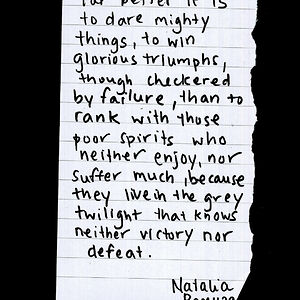 far better it is
to dare mighty
things, to win
glorious triumphs,
though checkered
by failure, than to
rank with those
poor spirits who
neither enjoy, nor
suffer much, because
they live in the grey
twilight that knows
neither victory nor
defeat.
Natalia